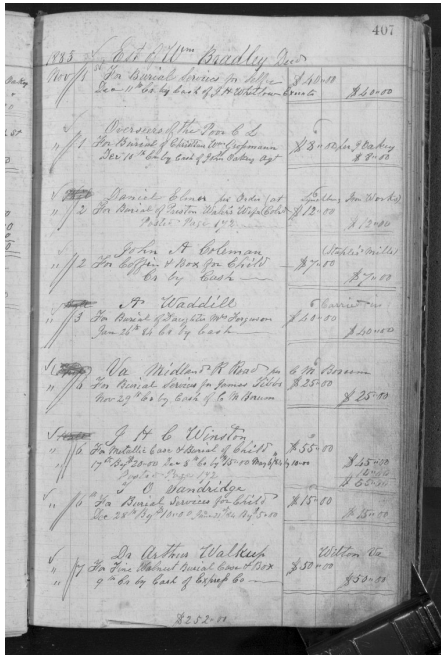 407
1883 Est of Wm Bradley Decd
Nov 1st For Burial Services for Selfe $40-00
Dec 11th Cr by Cash of J. H. Whitlow $40-00
Overseers of the Poor C. C.
" 1 For Burial of Christian Wm $8-00 per J Oakey
Dec 10th Cr by Cash of John Oakey Agt $8-00
Daniel Elmer per Order
" 2 For Burial of Preston Wife Cold $12-00
Posted Page 172 $12-00
John A Coleman Staples Mills
" 2 For Coffin & Box for Child $7-00
Cr by Cash $7-00
A Waddill
" 3 For Burial of Daughter Mrs Ferguson $40-00
Jan 26th 84 Cr by Cash $40-00
Va Midland R Road per C M Borum
" 4 For Burial Services for James Tibbs $25-00
Nov 29th Cr by Cash of C M Borum $25-00
J H C Winston
" 6 For Metallic Case & Burial of Child $55-00
17th By 20-00 Dec 8th Cr by 15-00 by 10-00 $45-00
Vandridge
" 6 For Burial Services for Child $15-00
Dec 28th By 10-00 By 5-00 $15-00
Dr Arthur Walkup Witton Va
" 7 For Fine Walnut Burial Case & Box $50-00
9th Cr by Cash of Express Co $50-00
$252-00